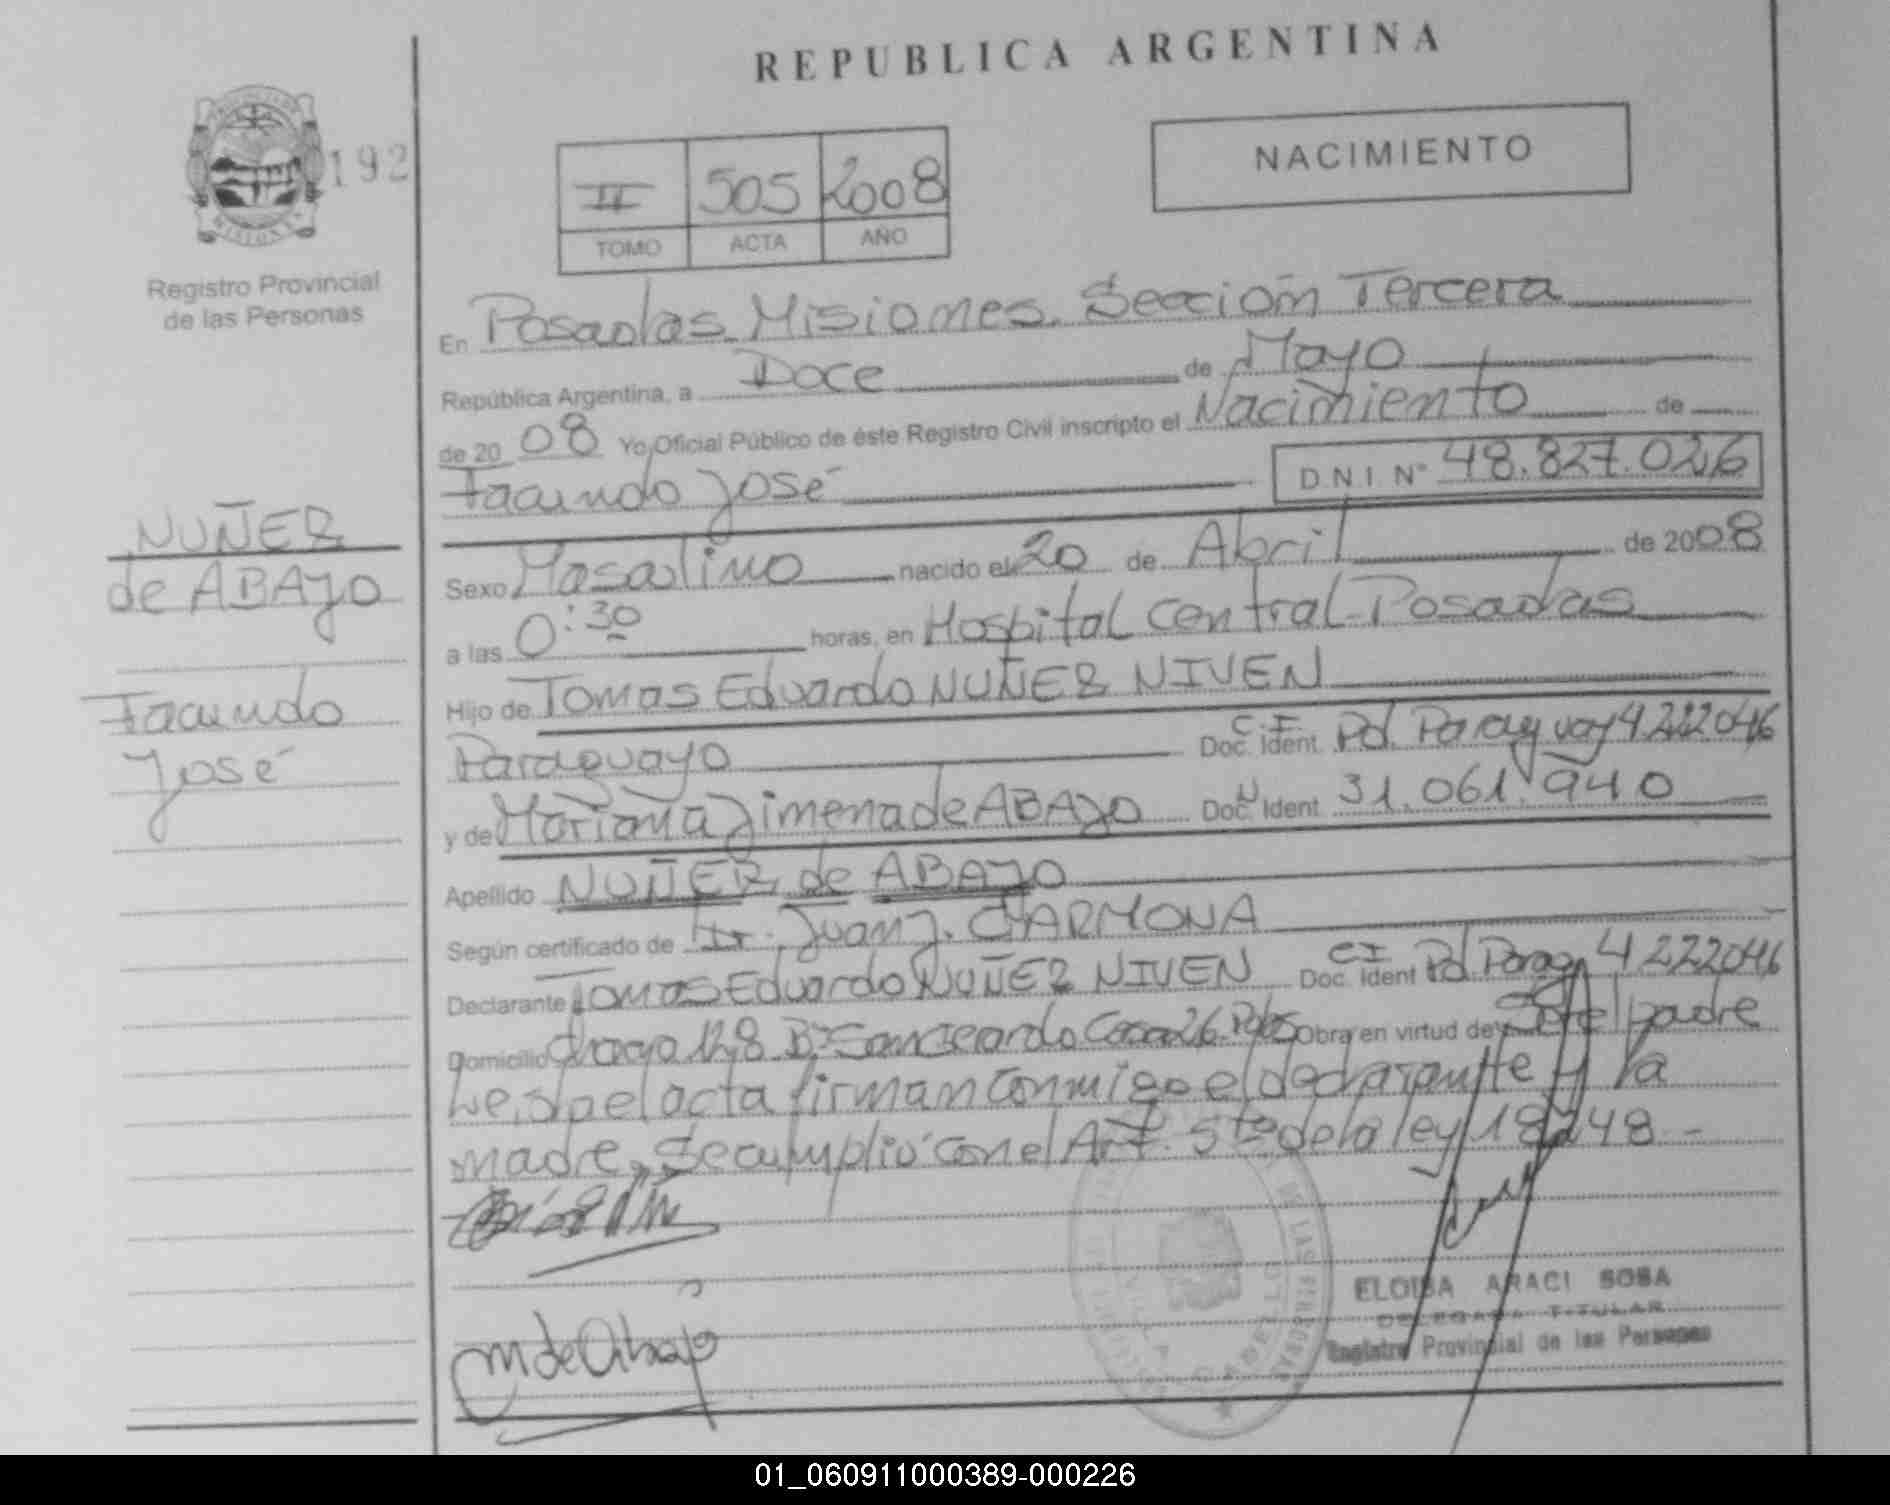 REPUBLICA ARGENTINA
192
NACIMIENTO
II 505 2008
TOMO ACTA AÑO
MISIONES
Registro Provincial
de las Personas
En Posadas. Misiones. Sección Tercera
República Argentina, a Doce de Mayo
de 2008 Yo Oficial Público de éste Registro Civil inscripto el Nacimiento de
Facundo José D.N.I. Nº 48.827.026
NUÑEZ
de ABAJO
Facundo
José
Sexo Masculino nacido el 20 de Abril de 2008
a las 0:30 horas, en Hospital Central-Posadas
Hijo de Tomas Eduardo NUÑEZ NIVEN
Paraguayo C.I. Doc. Ident. Pol. Paraguay 4222046
y de Mariana Jimena de ABAJO Doc. Ident. 31.061.940
Apellido NUÑEZ de ABAJO
Según certificado de Dr. Juan J. CARMONA
Declarante Tomas Eduardo NUÑEZ NIVEN C.I. Doc. Ident Pol Parag 4222046
Domicilio 128 Bº San Casa 26. Pdas Obra en virtud de el padre
Leida el acta firman conmigo el declarante y la
madre. Se cumplió con el Art. 5to de la ley 18248-
m de Abajo
ELOISA ARACI SOSA
DELEGADA TITULAR
Registro Provincial de las Personas
01_060911000389-000226